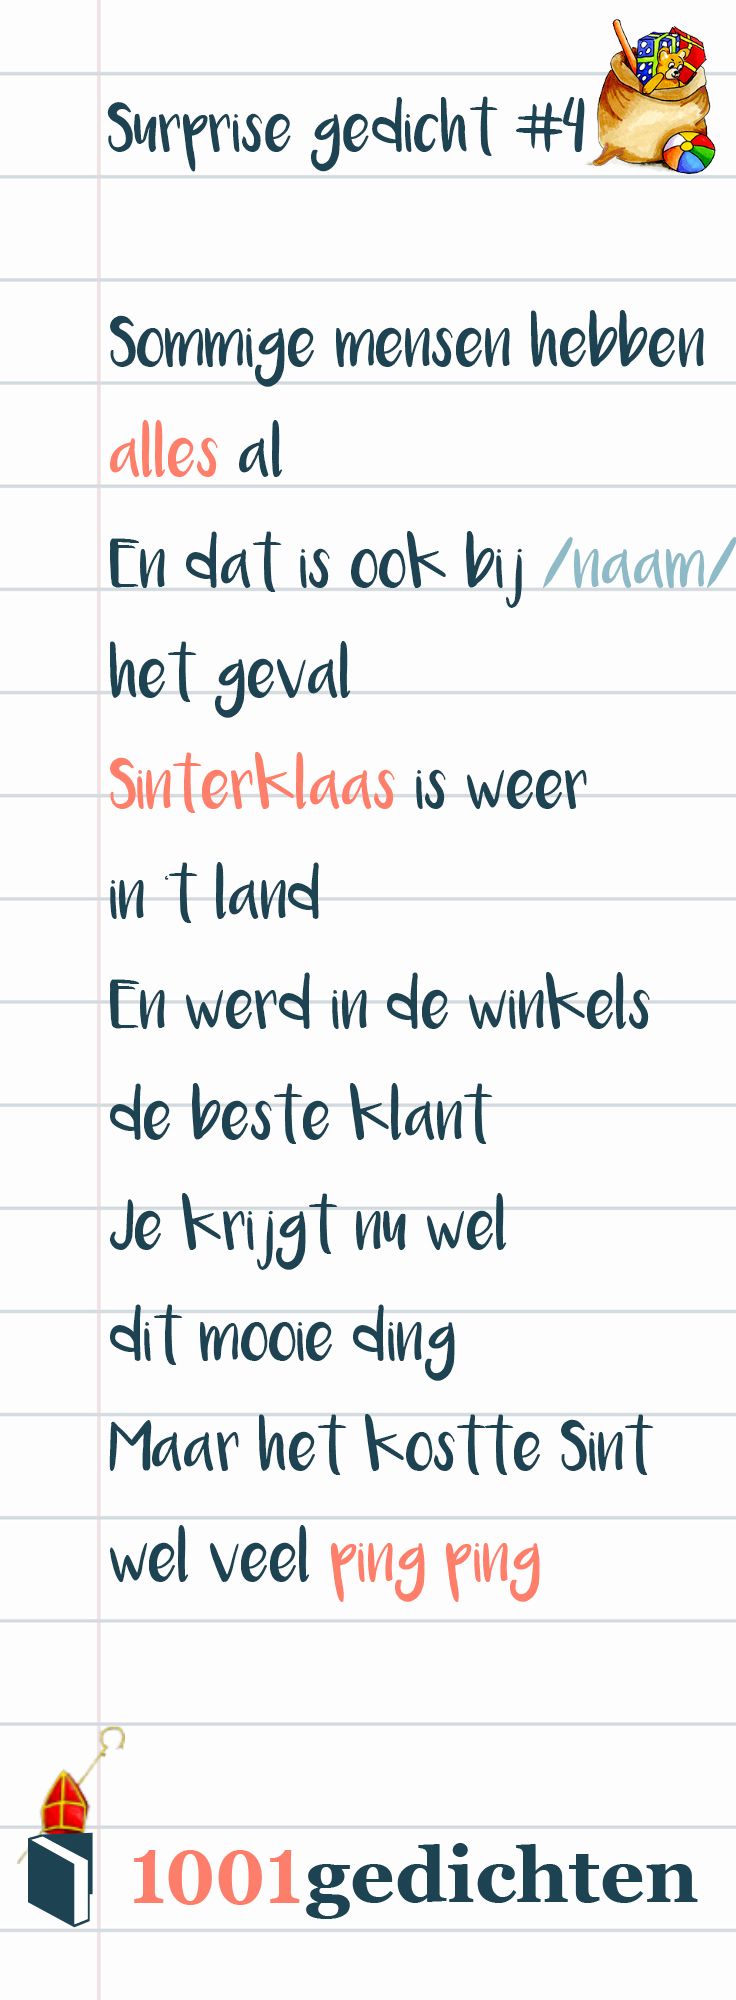 Surprise gedicht #4
Sommige mensen hebben
alles al
En dat is ook bij /naam/
het geval
Sinterklaas is weer
in 't land
En werd in de winkels
de beste klant
Je krijgt nu wel
dit mooie ding
Maar het kostte Sint
wel veel ping ping
1001gedichten